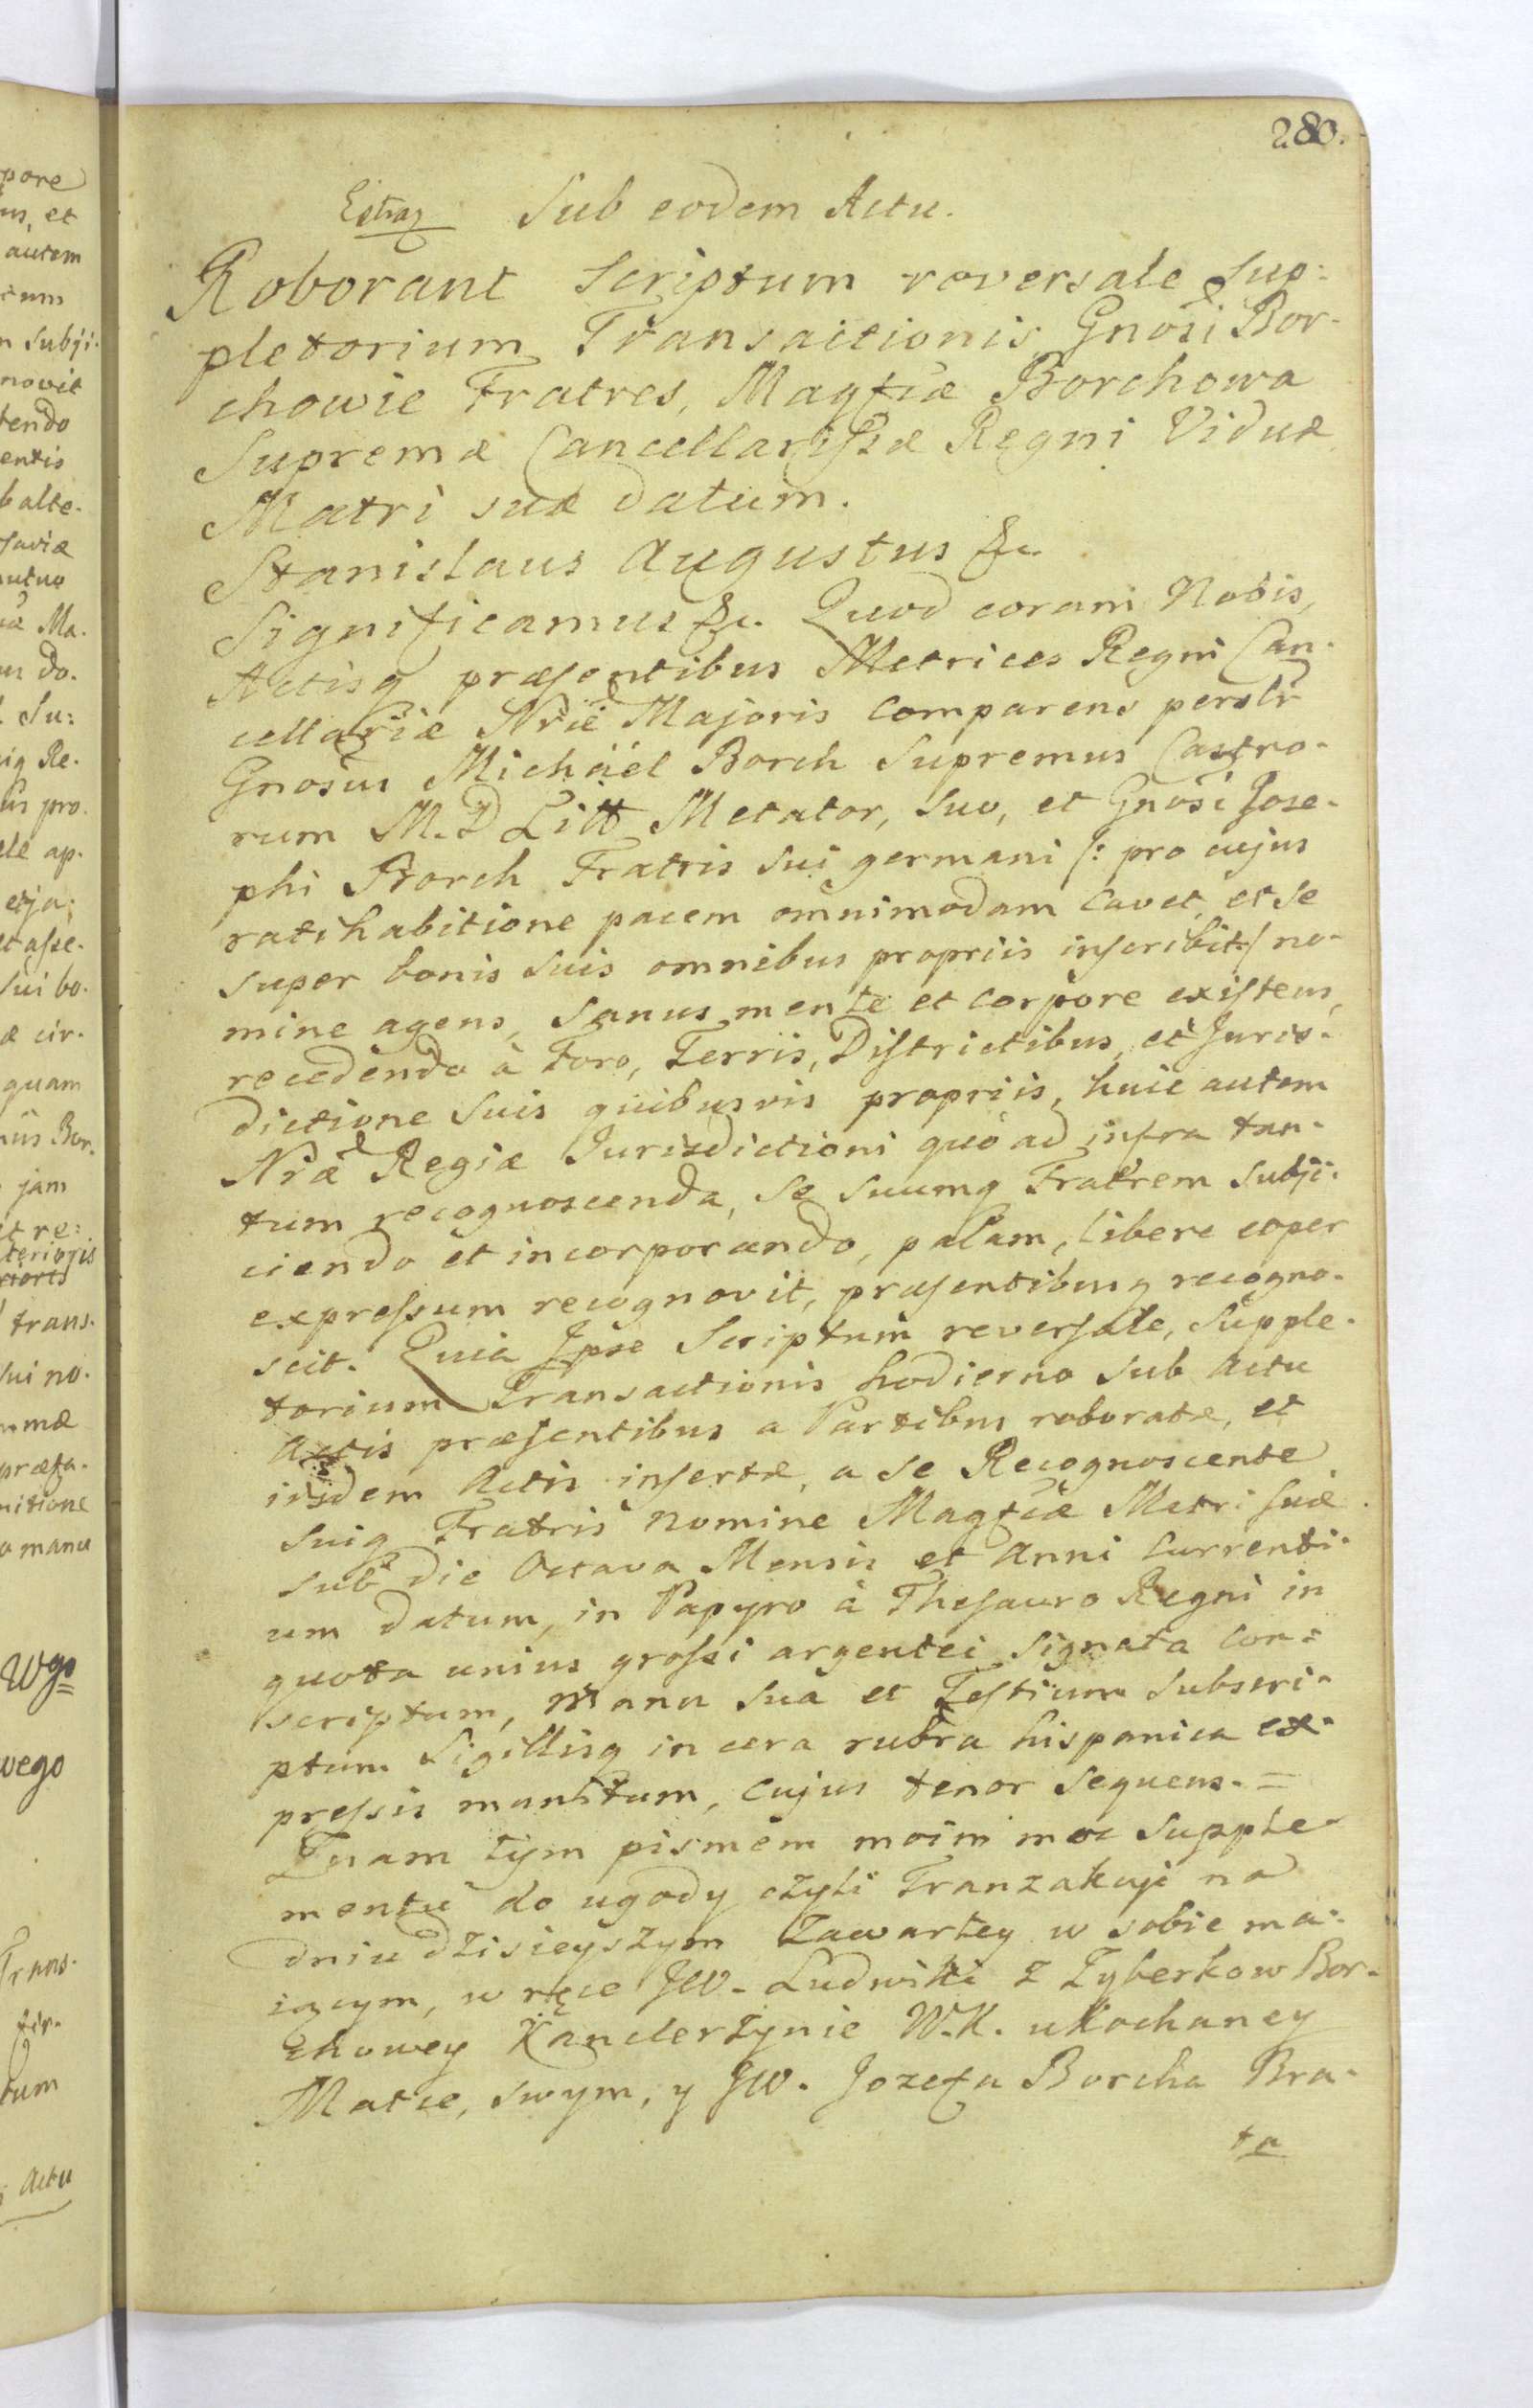 280.
Sub eodem Actu.
Roborant Scriptum reversale sup:
pletorium Transactionis Gnosi Bor-
chowie Fratres, Magfcæ Borchowa
Supremæ Cancellarissæ Regni Viduæ
Matri suæ datum.
Stanislaus Augustus &c.
Significamus &c. Quod coram Nobis,
Actisq præsentibus Metrices Regni Can-
cellariæ Nræ Majoris comparens perslr
Gnosus Michäel Borch Supremus Castro-
rum M.D Litt Metator, suo, et Gnosi Jose-
phi Borch Fratris sui germani /: pro cujus
ratihabitione pacem omnimodam cavet, et se
super bonis suis omnibus propriis inscribit :/ no-
mine agens, sanus mente et corpore existens,
recedendo à Foro, Terris, Districtibus, et Juris-
dictione suis quibusvis propriis, huic autem
Nræ Regiæ Jurisdictioni quo ad infra tan-
tum recognoscenda, se suumq Fratrem subji-
ciendo et incorporando, palam, libere et per
expressum recognovit, præsentibusq recogno-
scit. Quia Ipse Scriptum reversale, supple-
torium Transactionis hodierno sub actu
Actis præsentibus a Partibus roboratæ, et
iisdem Actis insertæ, a se Recognoscente
suiq Fratris nomine Magfcæ Matri suæ
sub die Octava Mensis et Anni currenti-
um datum, in Papyro à Thesauro Regni in
quota unius grossi argentei signata con-
scriptum, Manu sua et Testium subscri-
ptum Sigillisq in cera rubra hispanica ex-
pressis munitum, cujus tenor sequens. =
Znam tym pismem moim moc supple-
mentu do ugody czyli Tranzakcyi na
dniu dzisieyszym zawartey w sobie ma-
iącym, w ręce JW. Ludwiki z Zyberkow Bor-
chowey Kanclerzynie W.K. ukochaney
Matce, swym, y JW. Jozefa Borcha Bra-
ta
pore
us, et
autem
n subji-
novit
tendo
entis
b alte-
saviæ
utuo
Ma.
do.
Su:
iq Re.
pro.
ele ap.
et asse-
sui bo.
æ cir.
quam
Bor.
jam
et re:
teriojis
trans.
sui no.
mmæ
præfa.
nitione
a manu
Wgo
wego
Trans.
tum
Actu